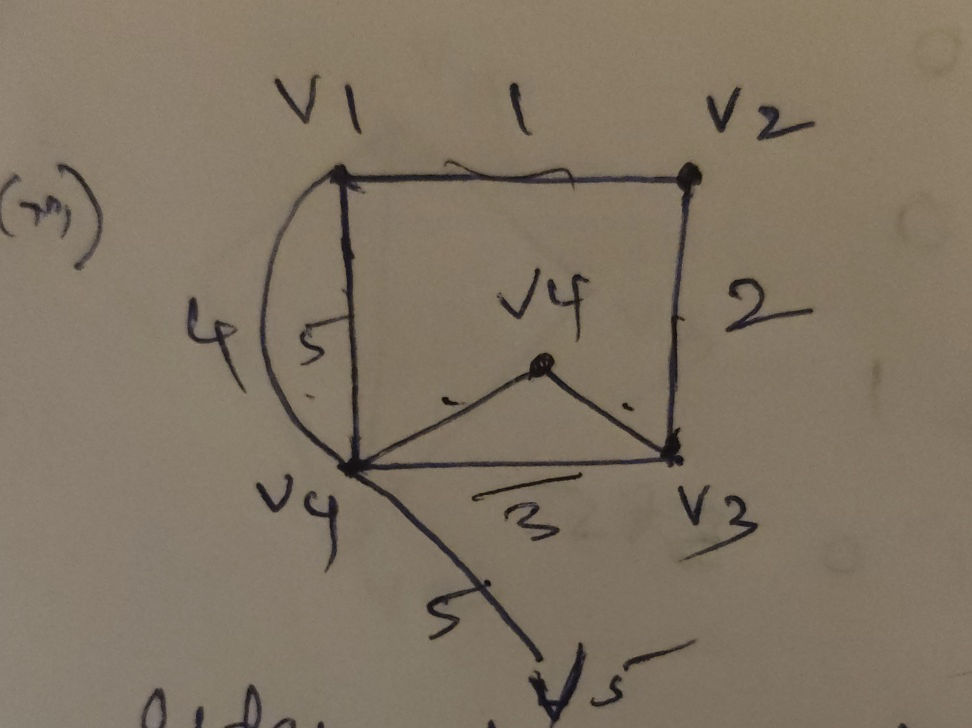 V1 1 V2
4 5 V4 2
V4 3 V3
5
V5